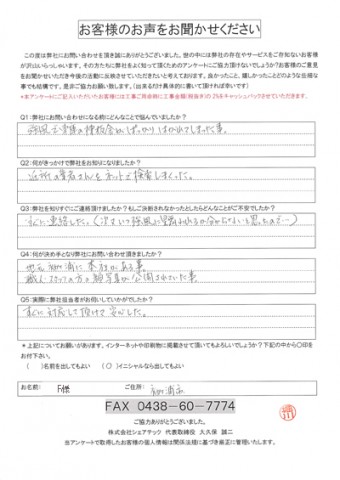 お客様のお声をお聞かせください
この度は弊社にお問い合わせを頂き誠にありがとうございました。世の中には弊社の存在やサービスをご存知ないお客様
が沢山いらっしゃいます。その方たちに弊社をよく知って頂くためのアンケートにご協力頂けないでしょうか?お客様のご意見
をお聞かせいただき今後の活動に反映させていただきたいと考えております。良かったこと、嬉しかったことどのような些細な
事でも結構です。是非ご協力お願い致します。(出来るだけ具体的に書いて頂ければ幸いです)
*本アンケートにご記入いただいたお客様には工事ご用命時に工事金額(税抜き)の2%をキャッシュバックさせていただきます。
Q1:弊社にお問い合わせになる前にどんなことで悩んでいましたか?
強風で事務の棟板金がばっかりはがれてしまった事。
Q2:何がきっかけで弊社をお知りになりましたか?
近所の業者さんをネットで検索しまくった。
Q3:弊社を知りすぐにご連絡頂けましたか?もしご決断されなかったとしたらどんなことがご不安でしたか?
すぐに連絡した。(次はいつ強風に見舞われるか分からないと思ったので…)
Q4:何が決め手となり弊社にお問い合わせ頂きましたか?
地元袖ケ浦に本社がある事。
職人・スタッフの方の顔写真が公開されていた事。
Q5:実際に弊社担当者がお伺いしていかがでしたか?
すぐに対応して頂けて安心した。
*上記についてお願いがあります。インターネットや印刷物に掲載させて頂いてもよろしいでしょうか?下記の中から〇印を
お付下さい。
( )名前を出してもよい (〇)イニシャルなら出してもよい
お名前: F様 ご住所: 袖ケ浦市
FAX 0438-60-7774
ご協力ありがとうございました。
株式会社シェアテック 代表取締役 大久保 誠二
当アンケートで取得したお客様の個人情報は関係法規に基づき厳正に管理いたします。